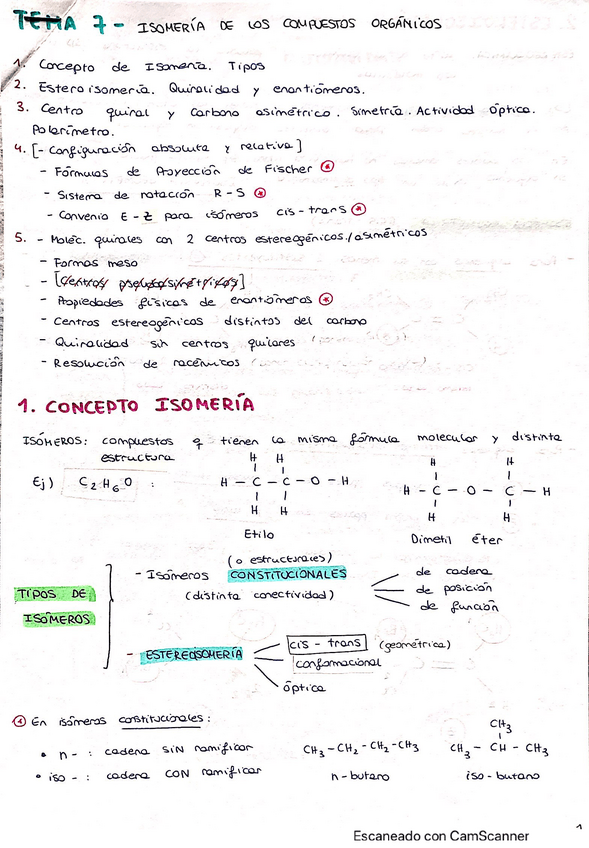 TEMA 7 - ISOMERÍA DE LOS COMPUESTOS ORGÁNICOS
1. Concepto de Isomería. Tipos
2. Estereoisomería. Quiralidad y enantiómeros.
3. Centro quiral y Carbono asimétrico. Simetría. Actividad Óptica.
Polarímetro.
4. [- Configuración absoluta y relativa]
- Fórmulas de Proyección de Fischer *
- Sistema de notación R - S *
- Convenio E - Z para isómeros cis - trans *
5. - Moléc. quirales con 2 centros estereogénicos/asimétricos
- Formas meso
- [Centros pseudoasimétricos]
- Propiedades físicas de enantiómeros *
- Centros estereogénicos distintos del carbono
- Quiralidad sin centros quirales
- Resolución de racémicos
1. CONCEPTO ISOMERÍA
ISÓMEROS: compuestos q tienen la misma fórmula molecular y distinta
estructura
Ej) C2H6O :
H H
H - C - C - O - H
H H
Etilo
H H
H - C - O - C - H
H H
Dimetil éter
TIPOS DE
ISÓMEROS
(o estructurales)
- Isómeros CONSTITUCIONALES
(distinta conectividad)
de cadena
de posición
de función
- ESTEREOISOMERÍA
cis - trans (geométrica)
conformacional
óptica
* En isómeros constitucionales:
• n - : cadena SIN ramificar
CH3 - CH2 - CH2 - CH3
n - butano
• iso - : cadena CON ramificar
CH3
CH3 - CH - CH3
iso - butano
1
Escaneado con CamScanner